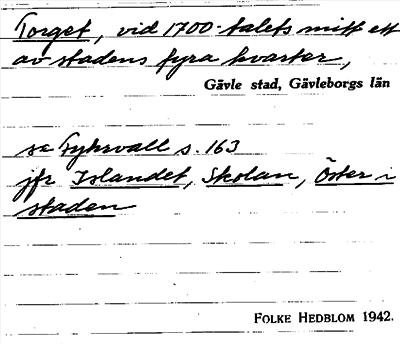 Torget, vid 1700-talets mitt ett
av stadens fyra kvarter,
Gävle stad, Gävleborgs län
se Fyhrvall s. 163
jfr Islandet, Skolan, Öster i
staden
FOLKE HEDBLOM 1942.